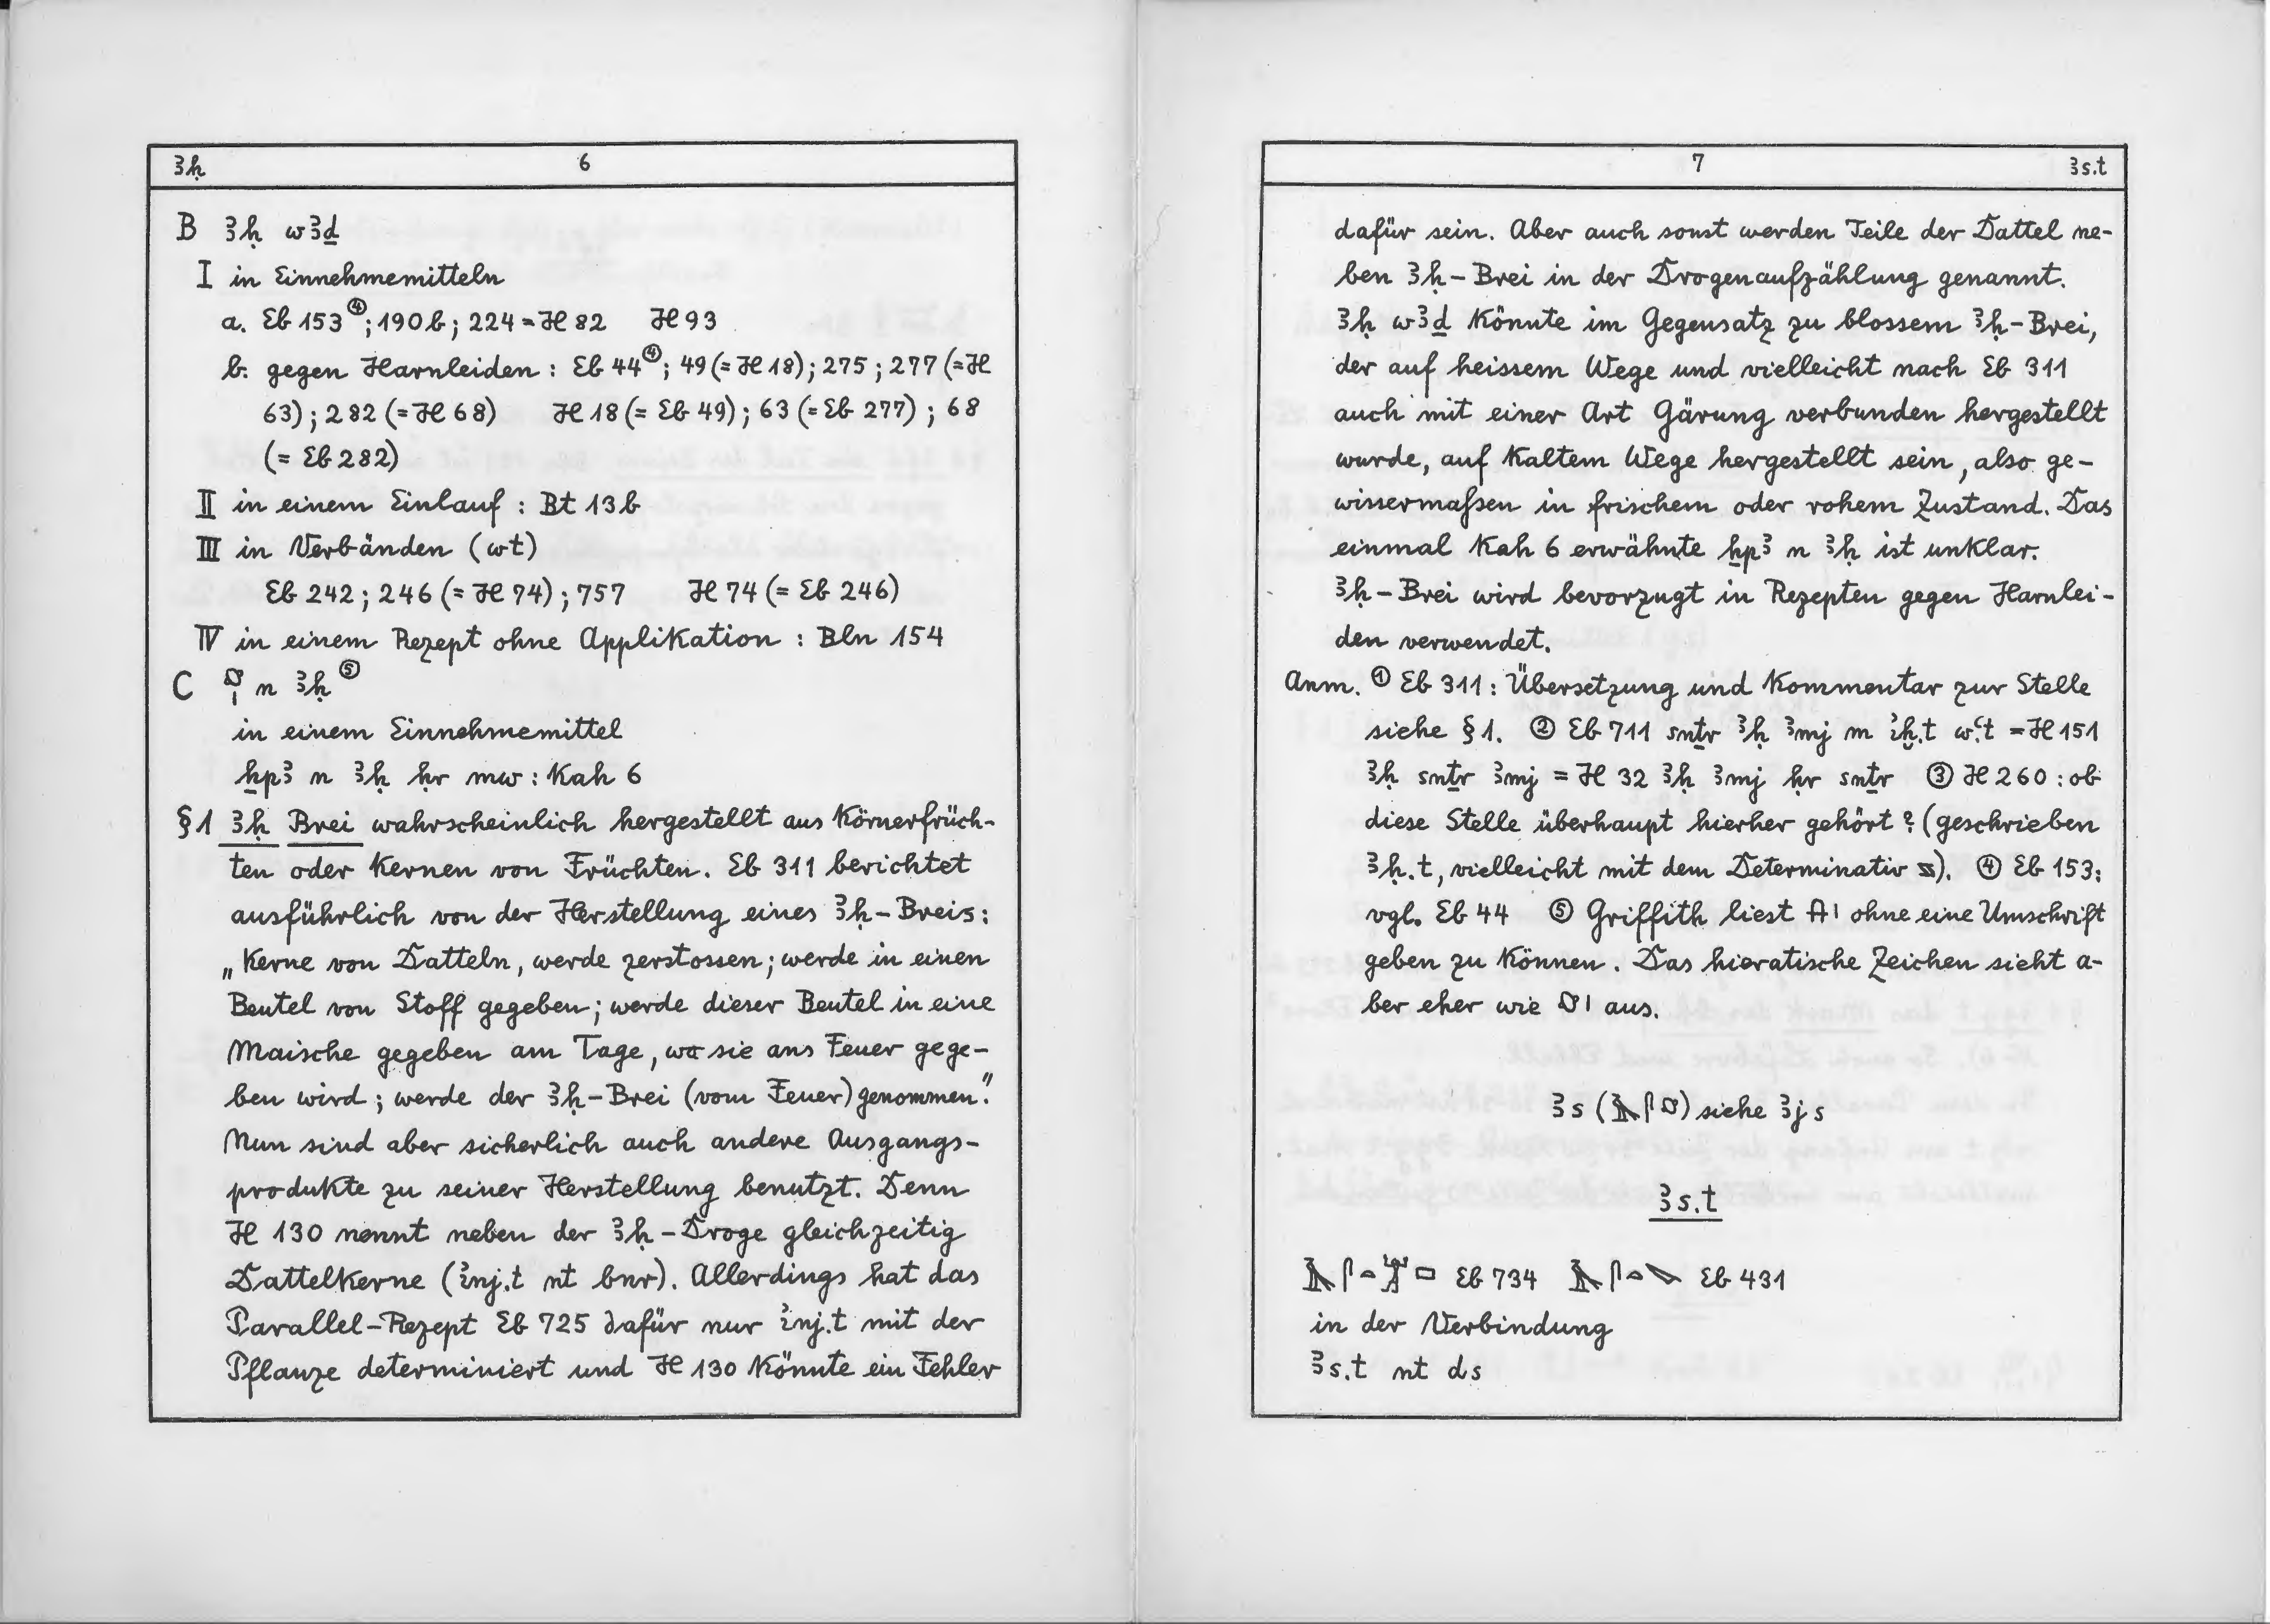 ꜣḥ 6
B ꜣḥ wꜣḏ
I in Einnehmemitteln
a. Eb 153④; 190b; 224 = H 82 H 93
b. gegen Harnleiden : Eb 44④; 49 (= H 18); 275; 277 (= H
63); 282 (= H 68) H 18 (= Eb 49); 63 (= Eb 277); 68
(= Eb 282)
II in einem Einlauf : Bt 13b
III in Verbänden (wt)
Eb 242; 246 (= H 74); 757 H 74 (= Eb 246)
IV in einem Rezept ohne Applikation : Bln 154
C n ꜣḥ⑤
in einem Einnehmemittel
ẖpꜣ n ꜣḥ ḥr mw : Kah 6
§1 ꜣḥ Brei wahrscheinlich hergestellt aus Körnerfrüch-
ten oder Kernen von Früchten. Eb 311 berichtet
ausführlich von der Herstellung eines ꜣḥ-Breis:
„Kerne von Datteln, werde zerstossen; werde in einen
Beutel von Stoff gegeben; werde dieser Beutel in eine
Maische gegeben am Tage, wo sie ans Feuer gege-
ben wird; werde der ꜣḥ-Brei (vom Feuer) genommen."
Nun sind aber sicherlich auch andere Ausgangs-
produkte zu seiner Herstellung benutzt. Denn
H 130 nennt neben der ꜣḥ-Droge gleichzeitig
Dattelkerne (ỉnj.t nt bnr). Allerdings hat das
Parallel-Rezept Eb 725 dafür nur ỉnj.t mit der
Pflanze determiniert und H 130 könnte ein Fehler
7 ꜣs.t
dafür sein. Aber auch sonst werden Teile der Dattel ne-
ben ꜣḥ-Brei in der Drogenaufzählung genannt.
ꜣḥ wꜣḏ könnte im Gegensatz zu blossem ꜣḥ-Brei,
der auf heissem Wege und vielleicht nach Eb 311
auch mit einer Art Gärung verbunden hergestellt
wurde, auf kaltem Wege hergestellt sein, also ge-
wissermaßen in frischem oder rohem Zustand. Das
einmal Kah 6 erwähnte ẖpꜣ n ꜣḥ ist unklar.
ꜣḥ-Brei wird bevorzugt in Rezepten gegen Harnlei-
den verwendet.
Anm. ① Eb 311: Übersetzung und Kommentar zur Stelle
siehe §1. ② Eb 711 snṯr ꜣḥ ꜣmj m ỉḫ.t wꜥ.t = H 151
ꜣḥ snṯr ꜣmj = H 32 ꜣḥ ꜣmj ḥr snṯr ③ H 260 : ob
diese Stelle überhaupt hierher gehört? (geschrieben
ꜣḥ.t, vielleicht mit dem Determinativ ). ④ Eb 153:
vgl. Eb 44 ⑤ Griffith liest ohne eine Umschrift
geben zu können. Das hieratische Zeichen sieht a-
ber eher wie aus.
ꜣs ( ) siehe ꜣjs
ꜣs.t
Eb 734 Eb 431
in der Verbindung
ꜣs.t nt ds